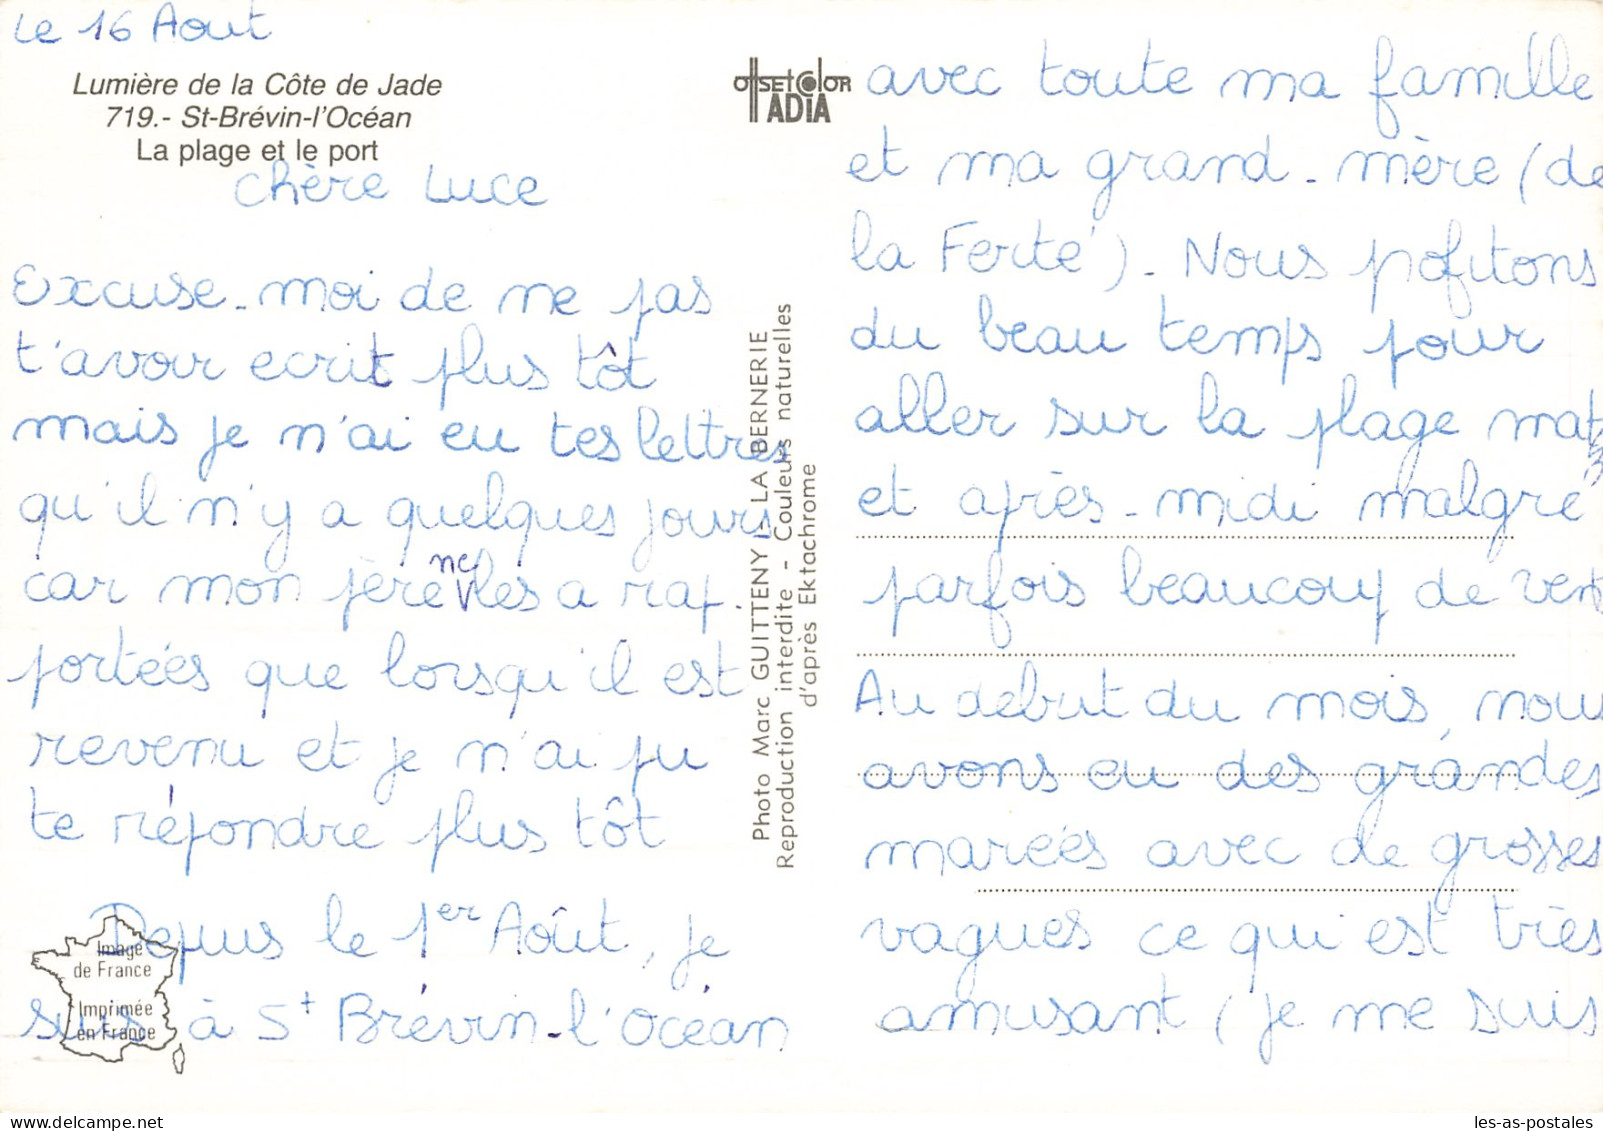 Le 16 Aout
Lumière de la Côte de Jade
719.- St-Brévin-l'Océan
La plage et le port
chère Luce
Excuse-moi de ne pas
t'avoir ecrit plus tôt
mais je n'ai eu tes lettres
qu'il n'y a quelques jours
car mon père ne les a rap-
portées que lorsqu'il est
revenu et je n'ai pu
te répondre plus tôt
Depuis le 1er Août, je
suis à St Brévin-l'Océan
Image
de France
Imprimée
en France
OffSETCOLOR
ADIA
Photo Marc GUITTENY - LA BERNERIE
Reproduction interdite - Couleurs naturelles
d'après Ektachrome
avec toute ma famille
et ma grand-mère (de
la Ferté). Nous pofitons
du beau temps pour
aller sur la plage matin
et après-midi malgré
parfois beaucoup de vent
Au début du mois, nous
avons eu des grandes
marées avec de grosses
vagues ce qui est très
amusant (je me suis
les-as-postales